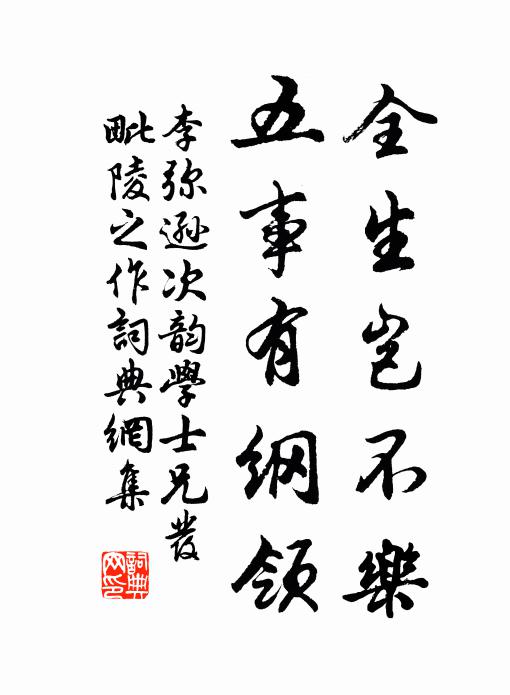 全生岂不樂
五事有綱領
李弥遜次韵學士兄發
毗陵之作詞典網集
詞典網印